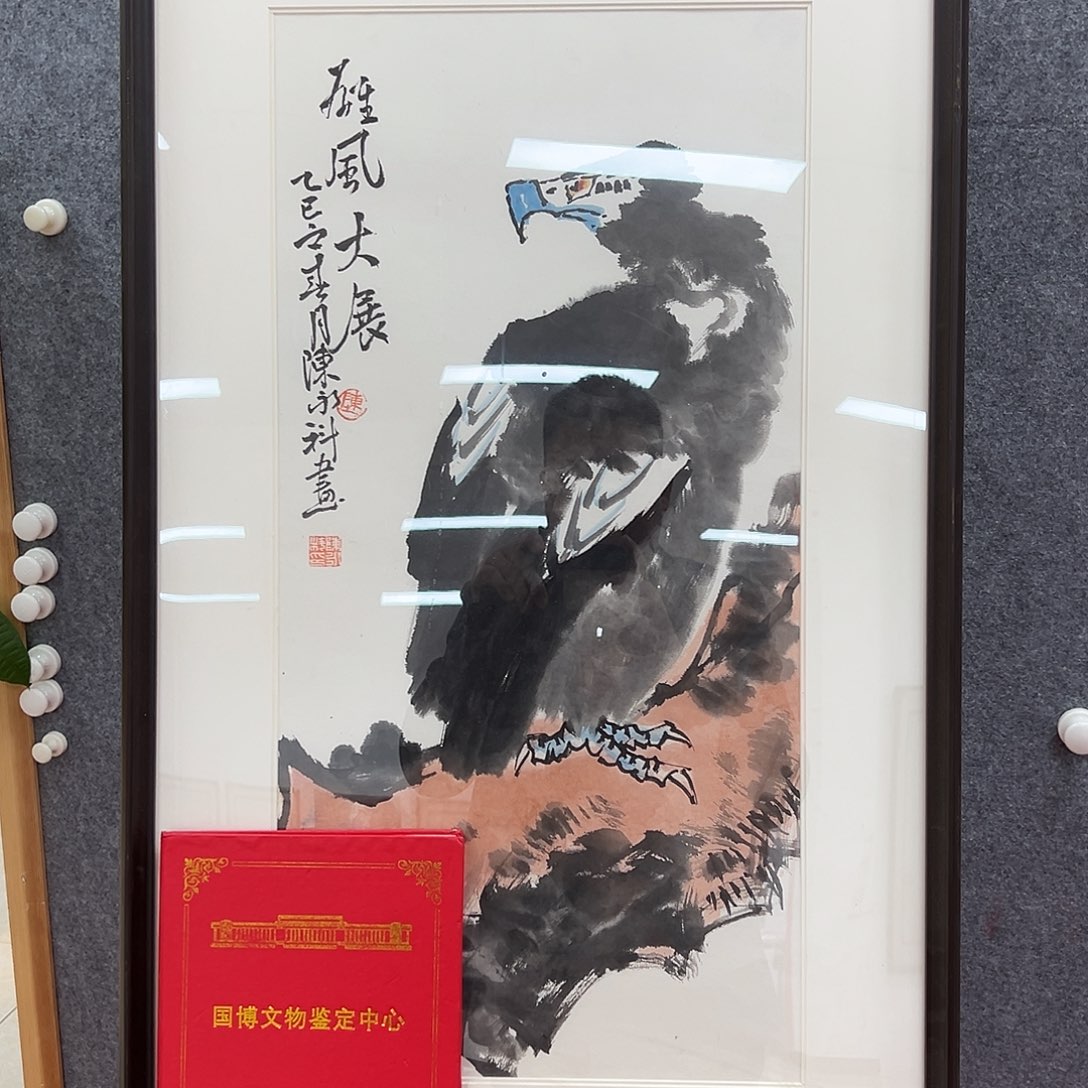 雄風大展
乙巳之春月陳永科畫
陳
国博文物鉴定中心